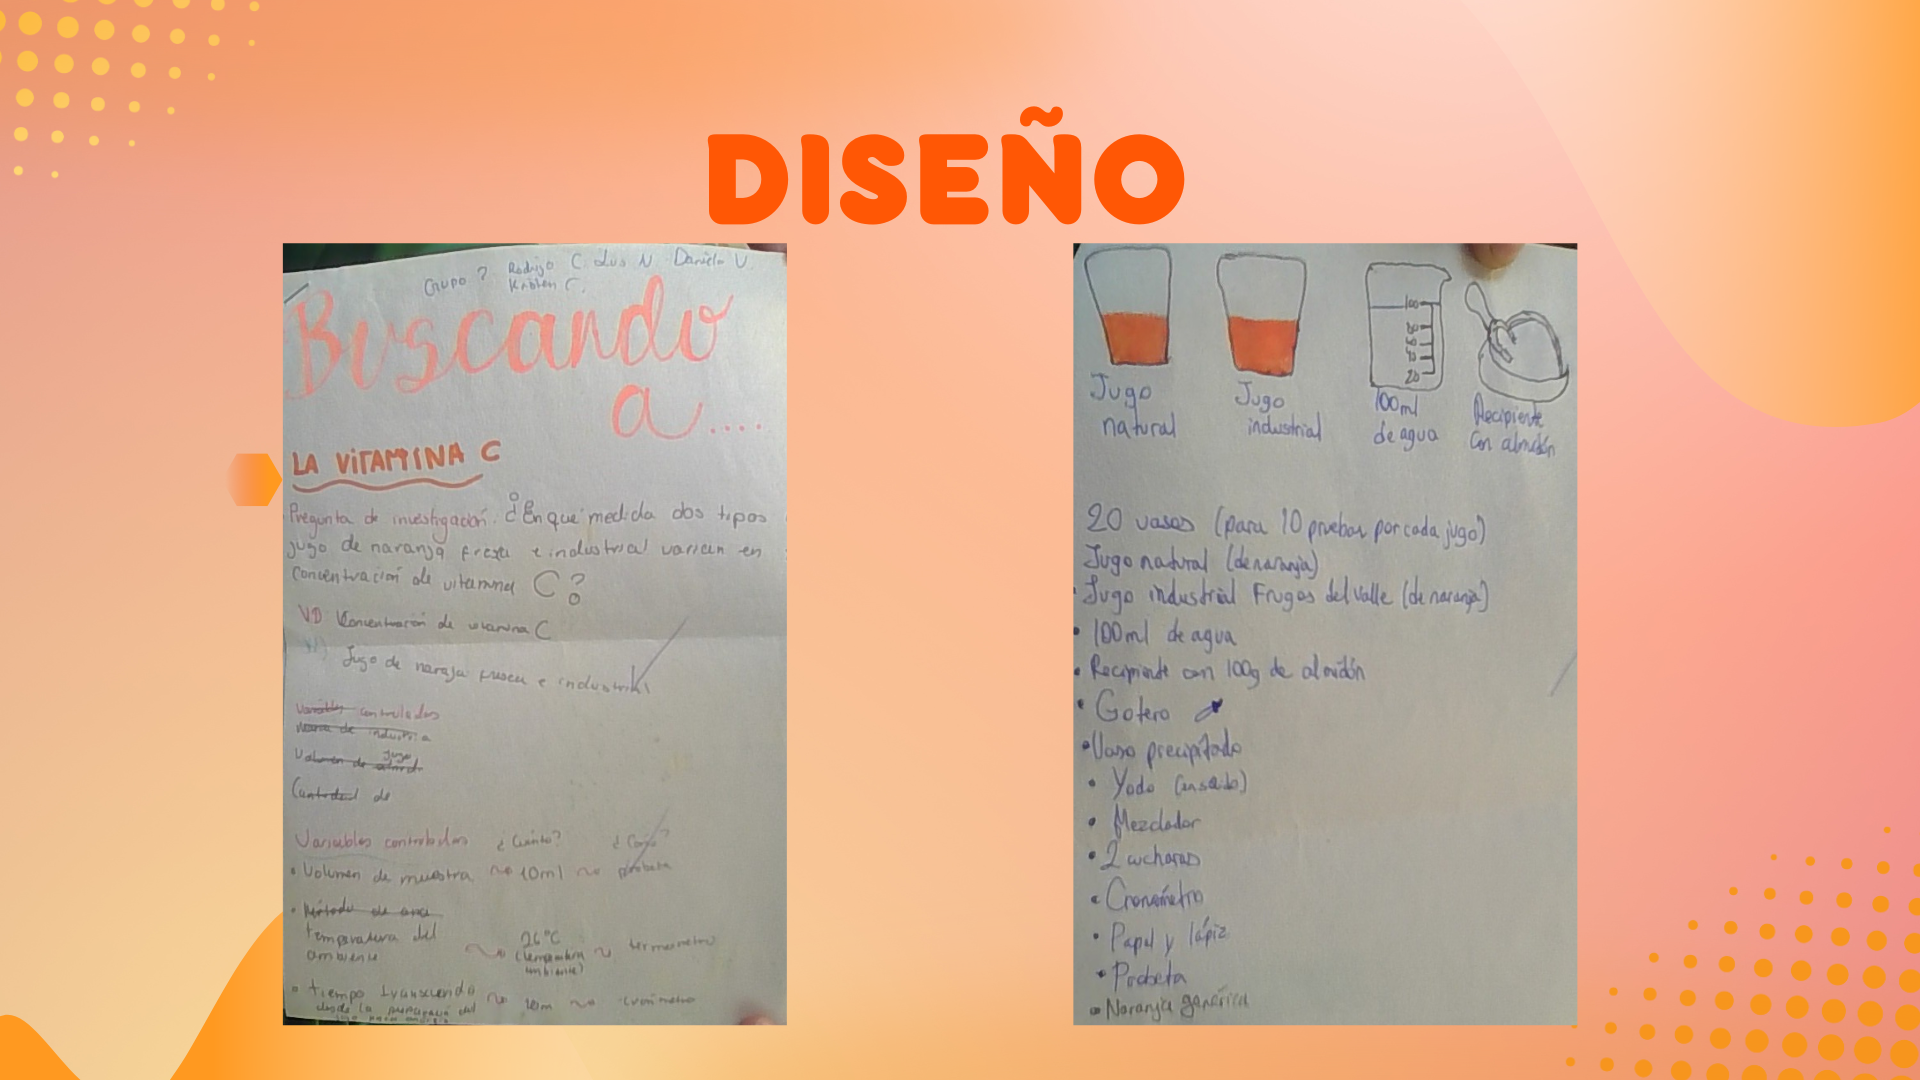 DISEÑO
Grupo 7 Rodrigo C. Luis N. Daniela V.
C.
Buscando
a....
LA ViTAMINA C
Pregunta de investigación: ¿En que medida dos tipos
jugo de naranja fresca e industrial varian en
Concentración de vitamina C?
VD Concentración de vitamina C
Jugo de naraja fresca e industrial
Variables controladas
Marca de industria
Volumen de jugo
Cantidad de
Variables controladas ¿Cuánto? ¿Cómo?
• Volumen de muestra 10ml probeta
temperatura del
ambiente
26°C
(temperatura
ambiente)
termometro
• tiempo transcurrido 10m cronometro
desde la preparación del
jugo para
100
20
Jugo
natural
Jugo
industrial
100ml
de agua
Recipiente
Con almidón
20 vasos (para 10 pruebas por cada jugo)
Jugo natural (de naranja)
• Jugo industrial Frugos del valle (de naranja)
• 100ml de agua
• Recipiente con 100g de almidón
• Gotero
• Vaso precipitado
• Yodo
• Mezclador
• 2 cucharas
• Cronómetro
• Papel y lápiz
• Probeta
• Naranja genérica